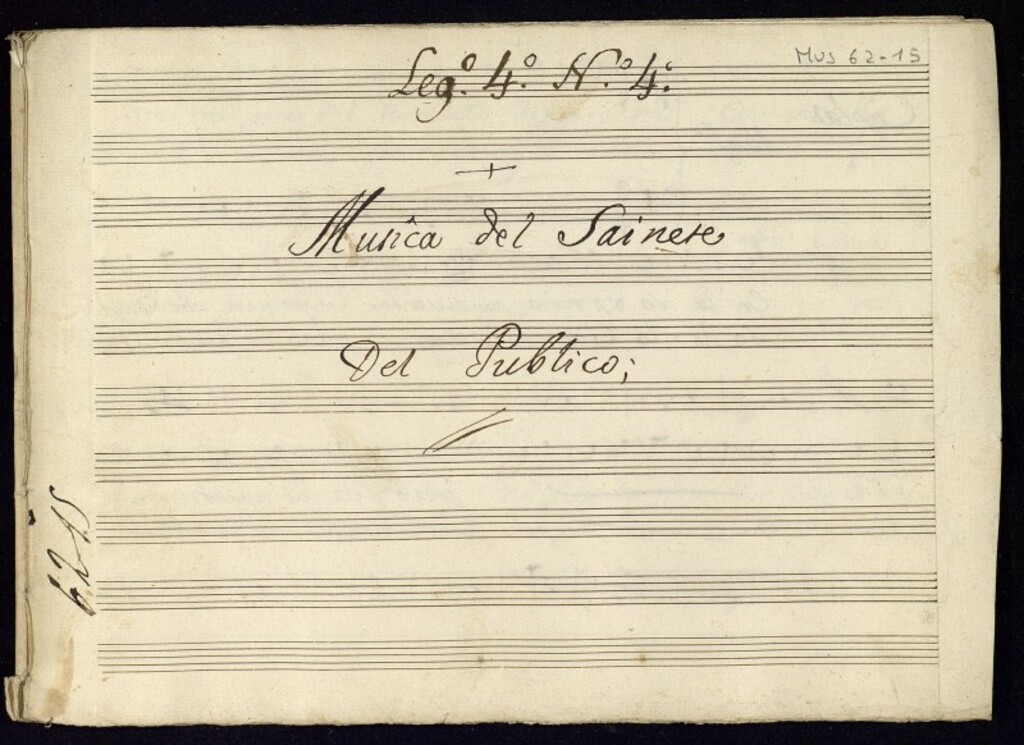 Mus 62-15
Leg.º 4.º N.º 4.º
+
Musica del Sainete
Del Publico;
62-15